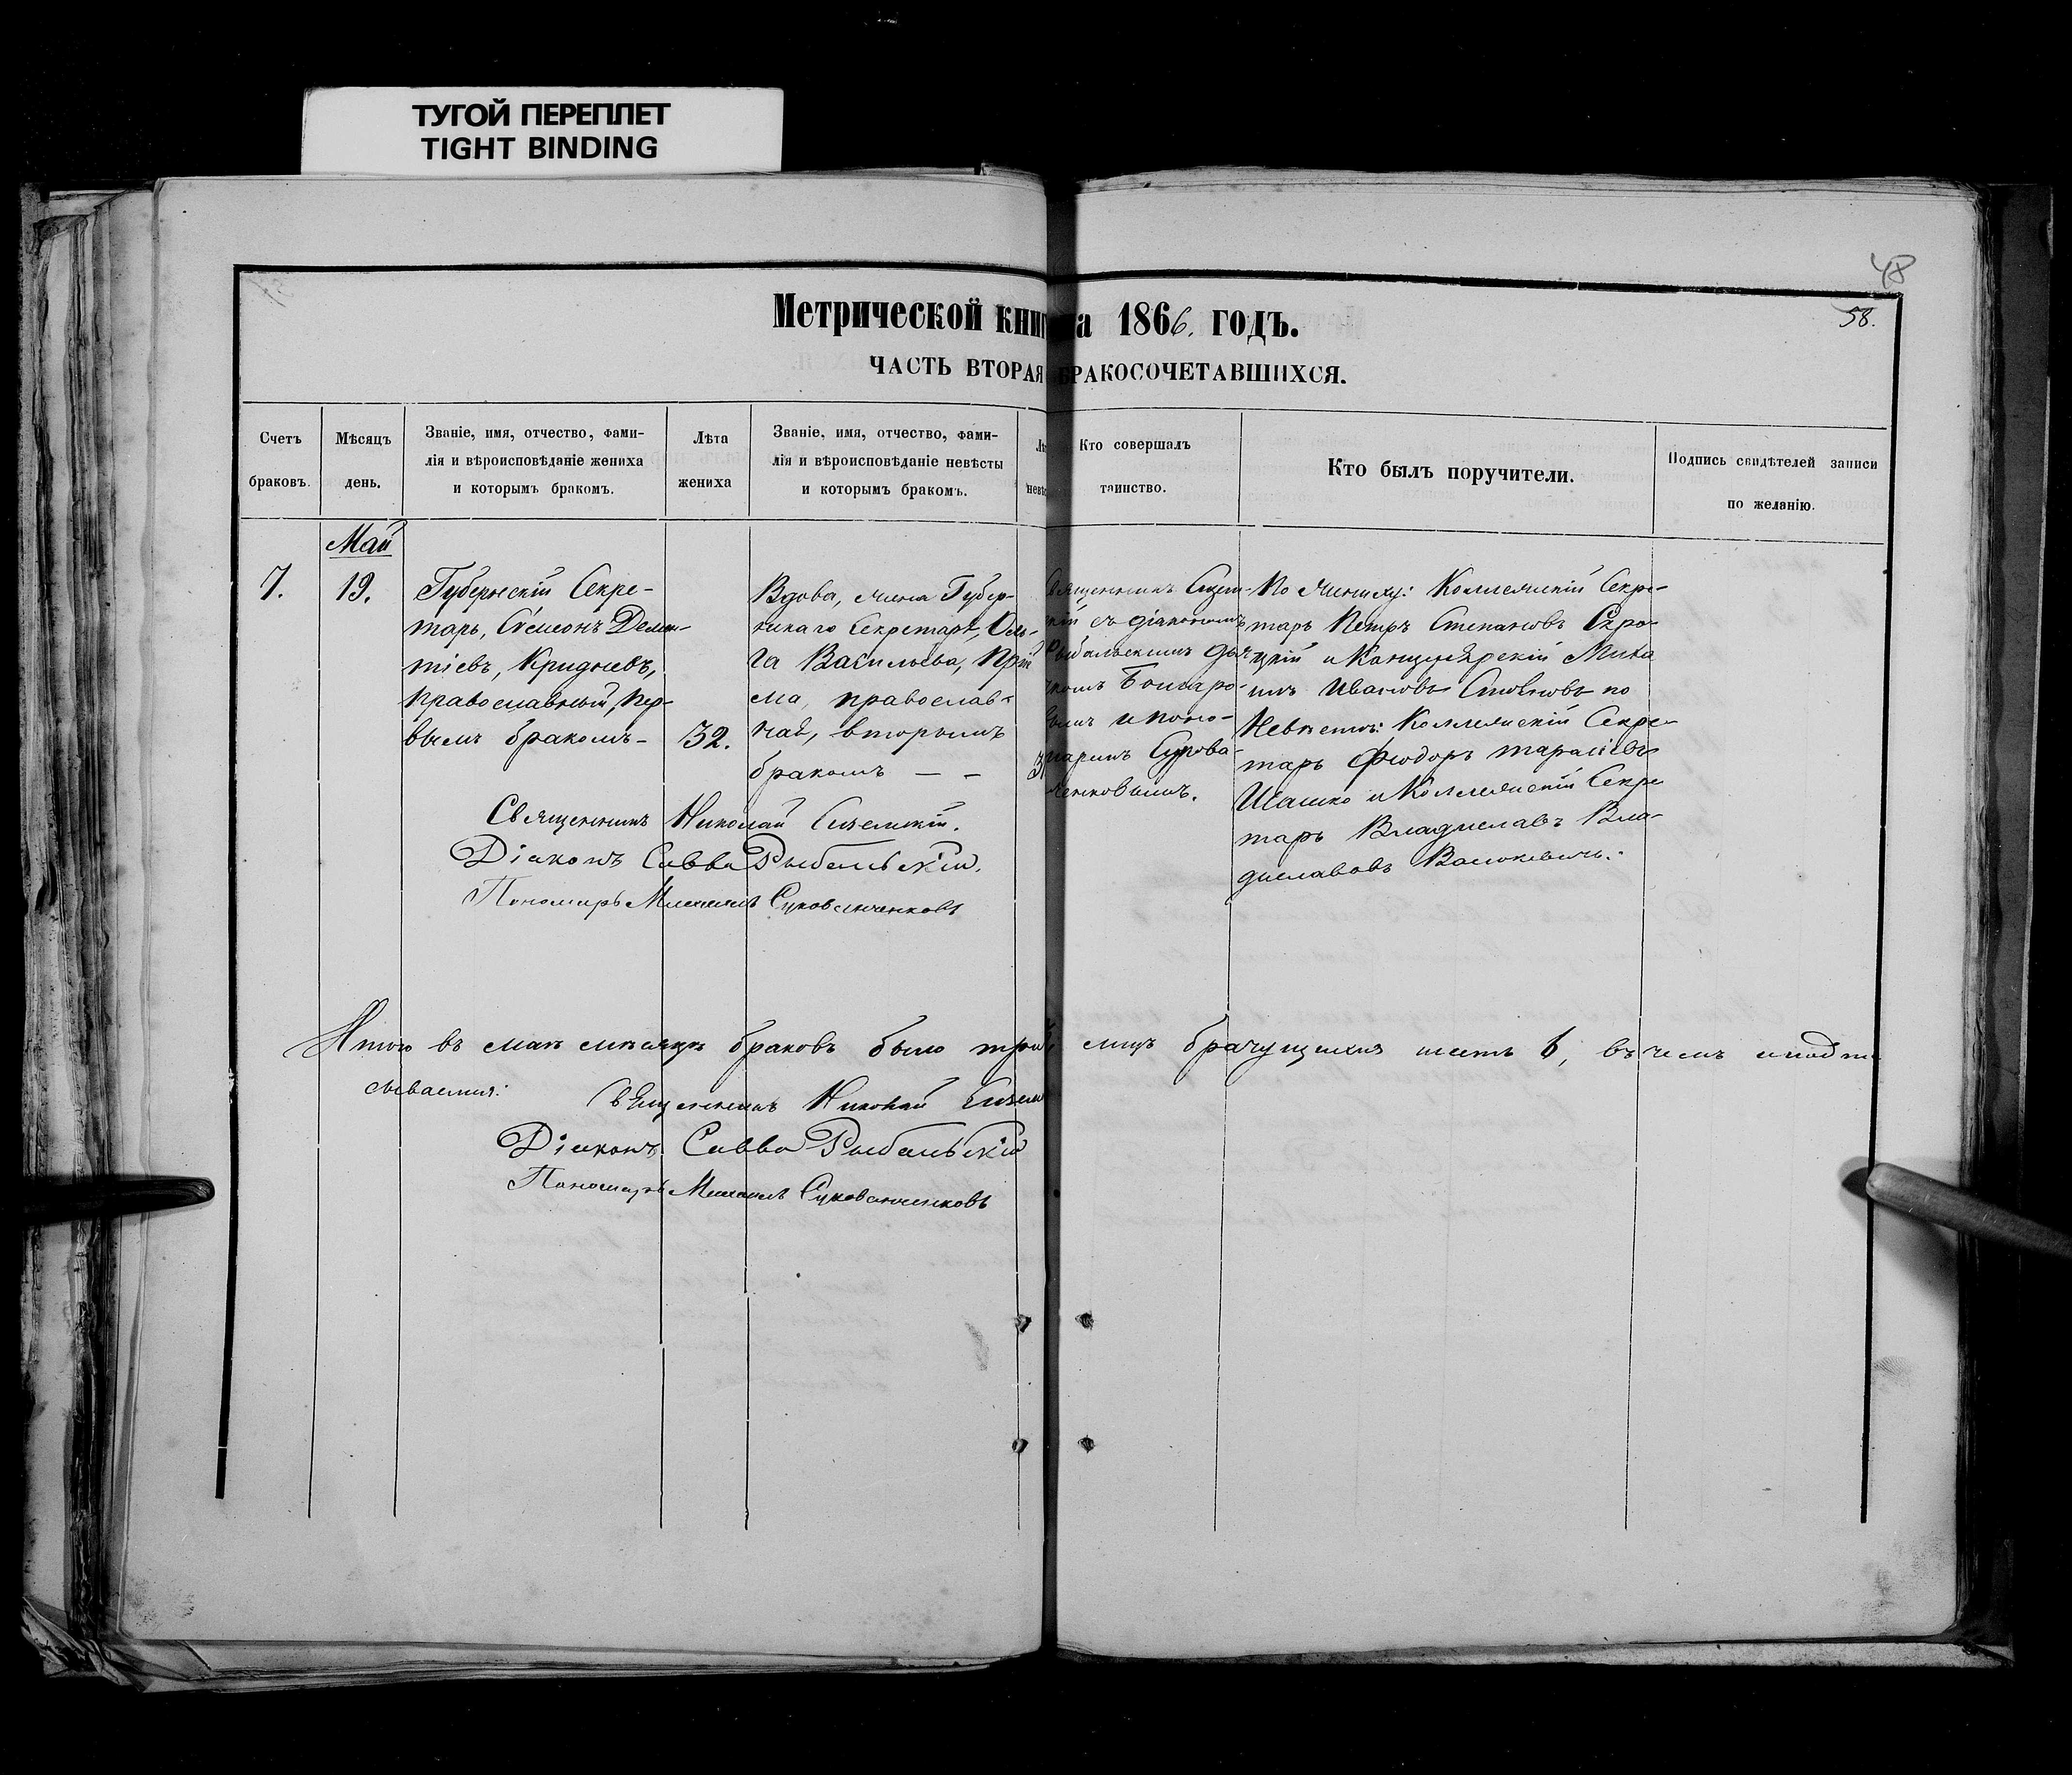 ТУГОЙ ПЕРЕПЛЕТ
TIGHT BINDING
48
58.
Метрической книг на 1866. годъ.
ЧАСТЬ ВТОРАЯ БРАКОСОЧЕТАВШИХСЯ.
Счетъ
браковъ.
Мѣсяцъ
день.
Званіе, имя, отчество, фами-
лія и вѣроисповѣданіе жениха
и которымъ бракомъ.
Лѣта
жениха
Званіе, имя, отчество, фами-
лія и вѣроисповѣданіе невѣсты
и которымъ бракомъ.
Лѣ
невѣс
Кто совершалъ
таинство.
Кто былъ поручители.
Подпись свидѣтелей записи
по желанію.
Май
7.
19.
Губернскій Секре-
тарь, Сѵмеонъ Демен-
тіевъ, Кридневъ,
православный, пер-
вымъ бракомъ-
32.
Вдова, жена Губер-
нскаго Секретаря, Оль-
га Васильева,
православ-
ная, вторымъ
бракомъ — -
3
Священникъ
кій съ діакономъ
Рыбальскимъ дья-
чкомъ
вымъ и поно-
маремъ
ченковымъ.
По жениху: Коллежскій Секре-
тарь Петръ Степановъ
цкій и Канцелярскій Миха
илъ Ивановъ по
Невѣстѣ: Коллежскій Секре-
тарь Ѳеодоръ Тарасіевъ
Шашко и Коллежскій Секре
тарь Владиславъ Вла-
диславовъ
Священникъ Николай
Діаконъ Савва Рыбальскій.
Пономарь Михаилъ
Итого въ маѣ мѣсяцѣ браковъ было три лицъ брачущихся шесть 6, въ чемъ и подпи
сываемся:
Священникъ Николай
Діаконъ Савва Рыбальскій
Пономарь Михаилъ